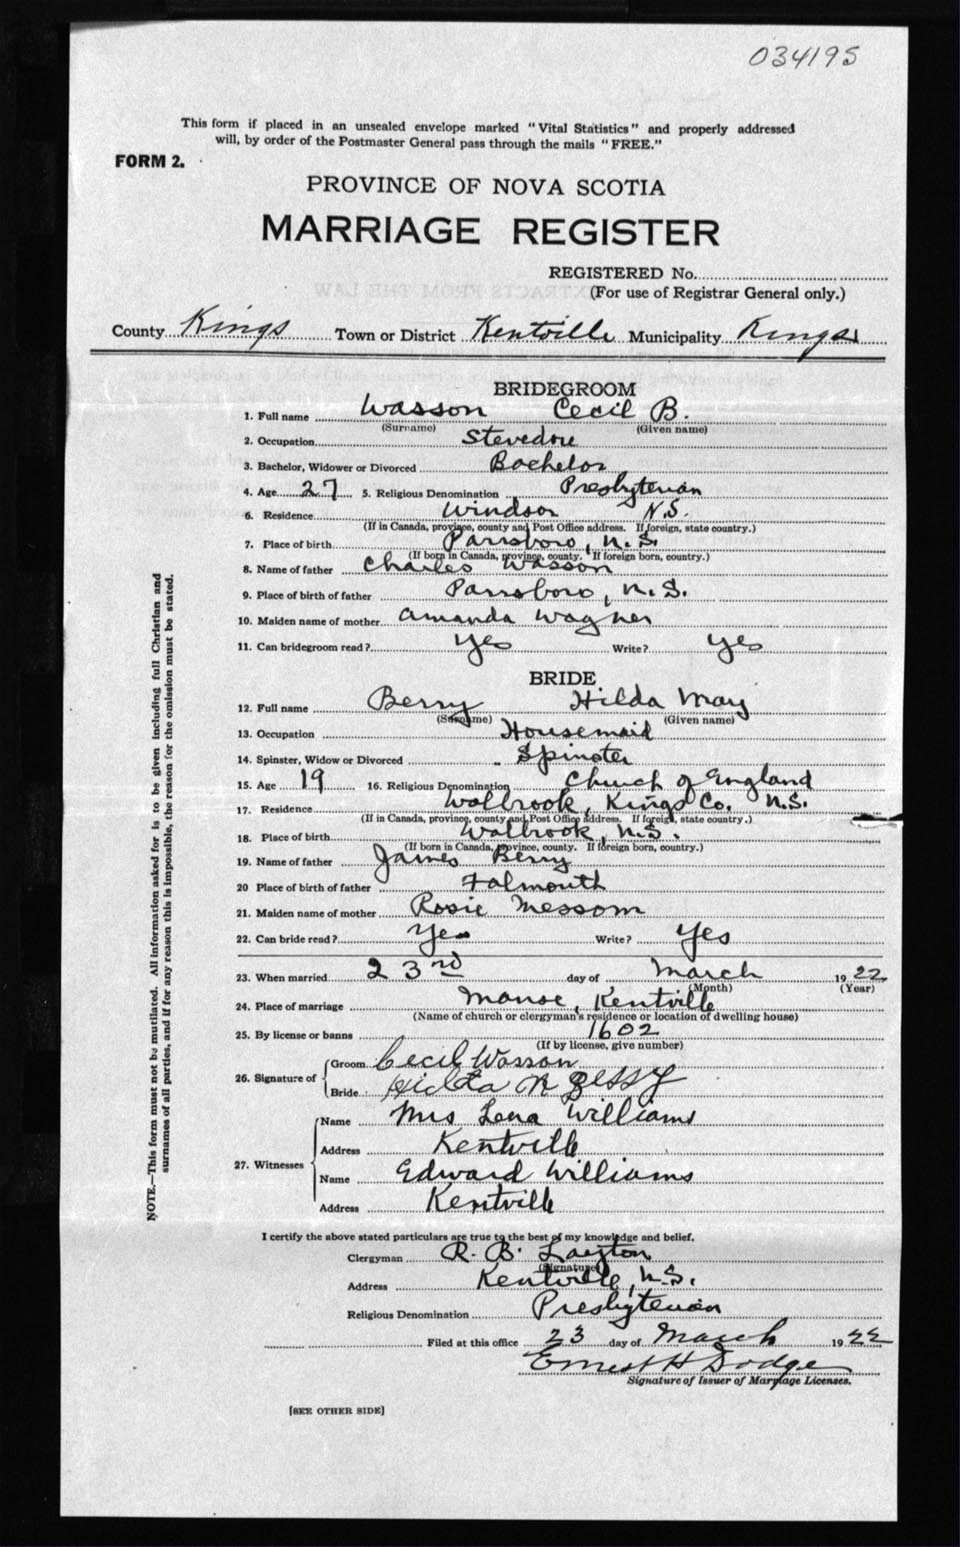 034195
This form if placed in an unsealed envelope marked "Vital Statistics" and properly addressed
will, by order of the Postmaster General pass through the mails "FREE."
FORM 2.
PROVINCE OF NOVA SCOTIA
MARRIAGE REGISTER
REGISTERED No.
(For use of Registrar General only.)
County Kings Town or District Kentville Municipality Kings
BRIDEGROOM
1. Full name Wasson Cecil B.
(Surname) (Given name)
2. Occupation Stevedore
3. Bachelor, Widower or Divorced Bachelor
4. Age 27 5. Religious Denomination Presbyterian
6. Residence Windsor N.S.
(If in Canada, province, county and Post Office address. If foreign, state country.)
7. Place of birth Parrsboro, N.S.
(If born in Canada, province, county. If foreign born, country.)
8. Name of father Charles Wasson
9. Place of birth of father Parrsboro, N.S.
10. Maiden name of mother Amanda Wagner
11. Can bridegroom read? Yes Write? Yes
BRIDE
12. Full name Berry Hilda May
(Surname) (Given name)
13. Occupation Housemaid
14. Spinster, Widow or Divorced Spinster
15. Age 19 16. Religious Denomination Church of England
17. Residence Wolbrook, Kings Co. N.S.
(If in Canada, province, county and Post Office address. If foreign, state country.)
18. Place of birth Wolbrook, N.S.
(If born in Canada, province, county. If foreign born, country.)
19. Name of father James Berry
20 Place of birth of father Falmouth
21. Maiden name of mother Rosie Messom
22. Can bride read? Yes Write? Yes
23. When married 23rd day of March 1922
(Month) (Year)
24. Place of marriage Manse, Kentville
(Name of church or clergyman's residence or location of dwelling house)
25. By license or banns 1602
(If by license, give number)
26. Signature of Groom Cecil Wasson
Bride Hilda M
27. Witnesses Name Mrs Lena Williams
Address Kentville
Name Edward Williams
Address Kentville
I certify the above stated particulars are true to the best of my knowledge and belief.
Clergyman R. B. Layton
(Signature)
Address Kentville, N.S.
Religious Denomination Presbyterian
Filed at this office 23 day of March 1922
Ernest H Dodge
Signature of Issuer of Marriage Licenses.
[SEE OTHER SIDE]
NOTE.—This form must not be mutilated. All information asked for is to be given including full Christian and
surnames of all parties, and if for any reason this is impossible, the reason for the omission must be stated.